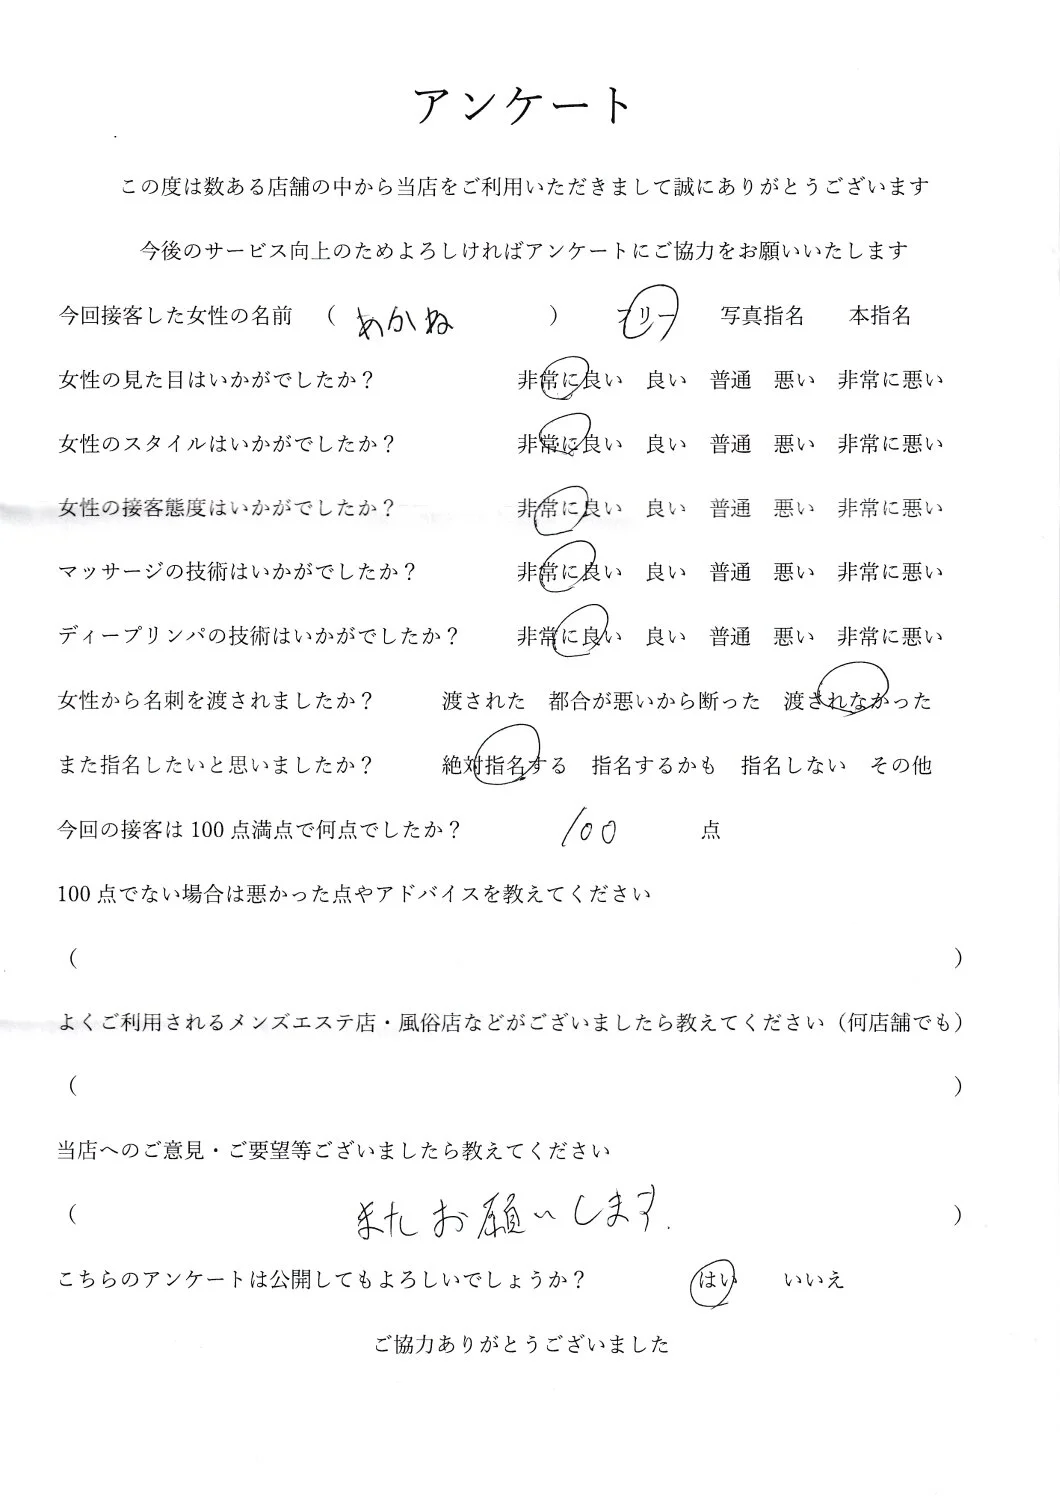 アンケート
この度は数ある店舗の中から当店をご利用いただきまして誠にありがとうございます
今後のサービス向上のためよろしければアンケートにご協力をお願いいたします
今回接客した女性の名前 （ あかね ） フリー 写真指名 本指名
女性の見た目はいかがでしたか？ 非常に良い 良い 普通 悪い 非常に悪い
女性のスタイルはいかがでしたか？ 非常に良い 良い 普通 悪い 非常に悪い
女性の接客態度はいかがでしたか？ 非常に良い 良い 普通 悪い 非常に悪い
マッサージの技術はいかがでしたか？ 非常に良い 良い 普通 悪い 非常に悪い
ディープリンパの技術はいかがでしたか？ 非常に良い 良い 普通 悪い 非常に悪い
女性から名刺を渡されましたか？ 渡された 都合が悪いから断った 渡されなかった
また指名したいと思いましたか？ 絶対指名する 指名するかも 指名しない その他
今回の接客は 100 点満点で何点でしたか？ 100 点
100 点でない場合は悪かった点やアドバイスを教えてください
（ ）
よくご利用されるメンズエステ店・風俗店などがございましたら教えてください（何店舗でも）
（ ）
当店へのご意見・ご要望等ございましたら教えてください
（ またお願いします. ）
こちらのアンケートは公開してもよろしいでしょうか？ はい いいえ
ご協力ありがとうございました